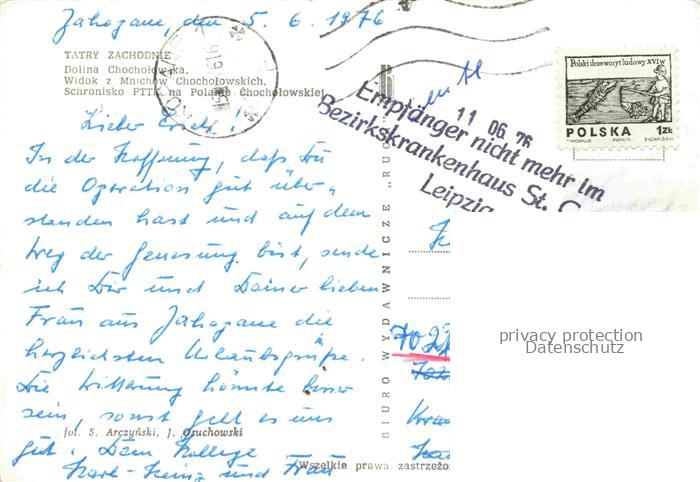 Zakopane, den 5.6.1976
TATRY ZACHODNIE
Dolina Chochołowska.
Widok z Mnichów Chochołowskich.
Schronisko PTTK na Polanie Chochołowskiej
Lieber Erich!
In der Hoffnung, daß Du
die Operation gut über-
standen hast und auf dem
Weg der Genesung bist, sende
ich Dir und Deiner lieben
Frau aus Zakopane die
herzlichsten Urlaubsgrüße.
Die Witterung könnte besser
sein, sonst geht es uns
gut. Dein Kollege
Karl-Heinz und Frau
fot. S. Arczyński, J. Osuchowski
BIURO WYDAWNICZE „RUCH
Wszelkie prawa zastrzeżo
11 06. 76
Empfänger nicht mehr im
Bezirkskrankenhaus St. G
Leipzig
Polski drzeworyt ludowy XVI w.
POLSKA 1ZŁ
702
privacy protection
Datenschutz